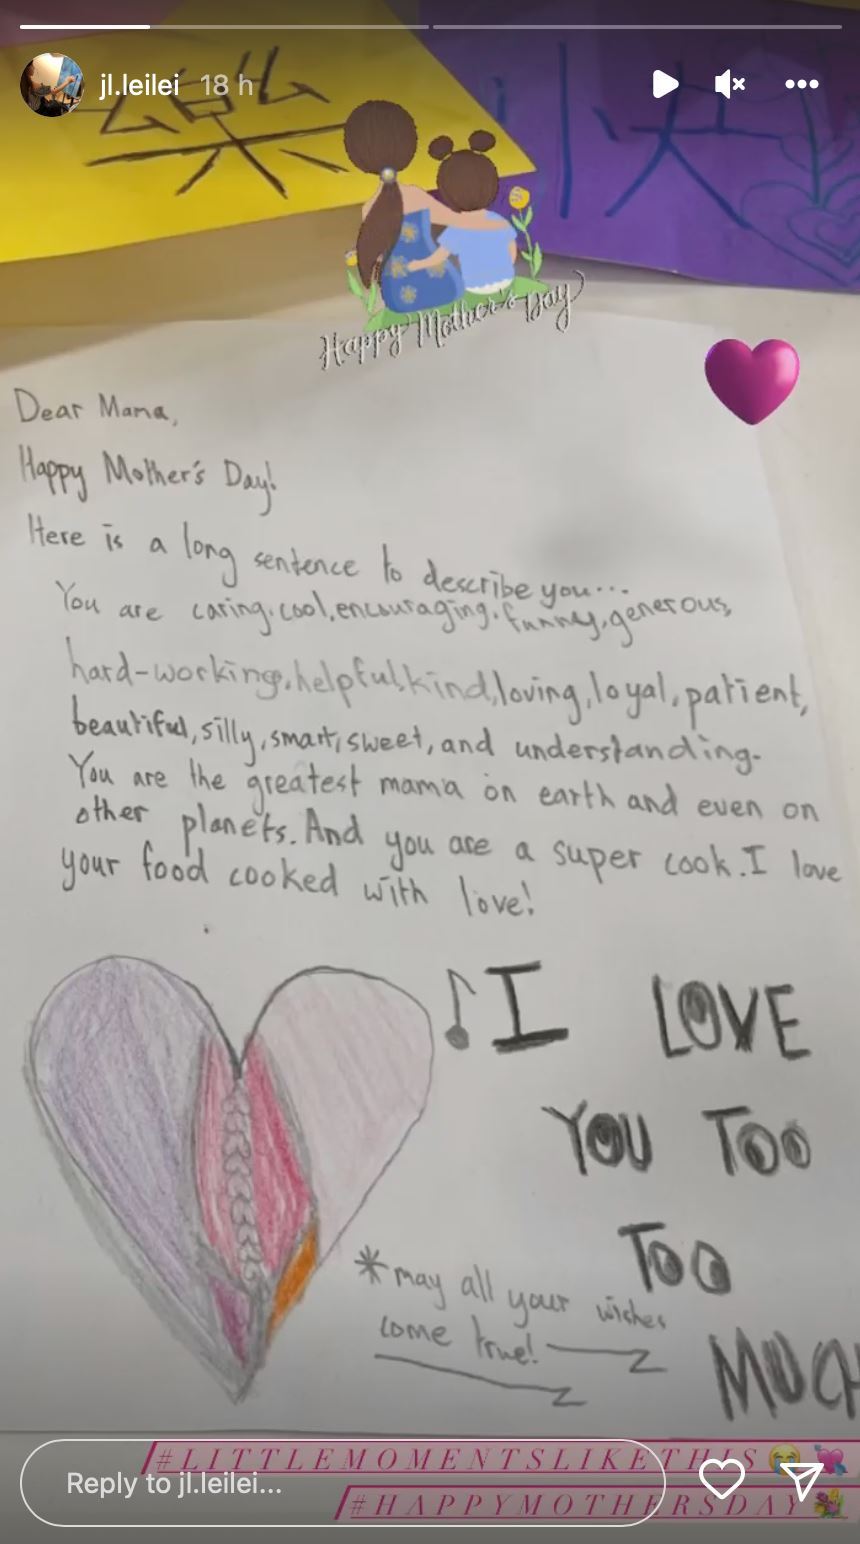 jl.leilei 18 h
樂 快
Happy Mother's Day
Dear Mama,
Happy Mother's Day!
Here is a long sentence to describe you...
You are caring, cool, encouraging, funny, generous,
hard-working, helpful, kind, loving, loyal, patient,
beautiful, silly, smart, sweet, and understanding.
You are the greatest mama on earth and even on
other planets. And you are a super cook. I love
your food cooked with love!
I LOVE
YOU TOO
TOO
MUCH
*may all your wishes
come true!
#LITTLEMOMENTSLIKETHIS
Reply to jl.leilei...
#HAPPYMOTHERSDAY